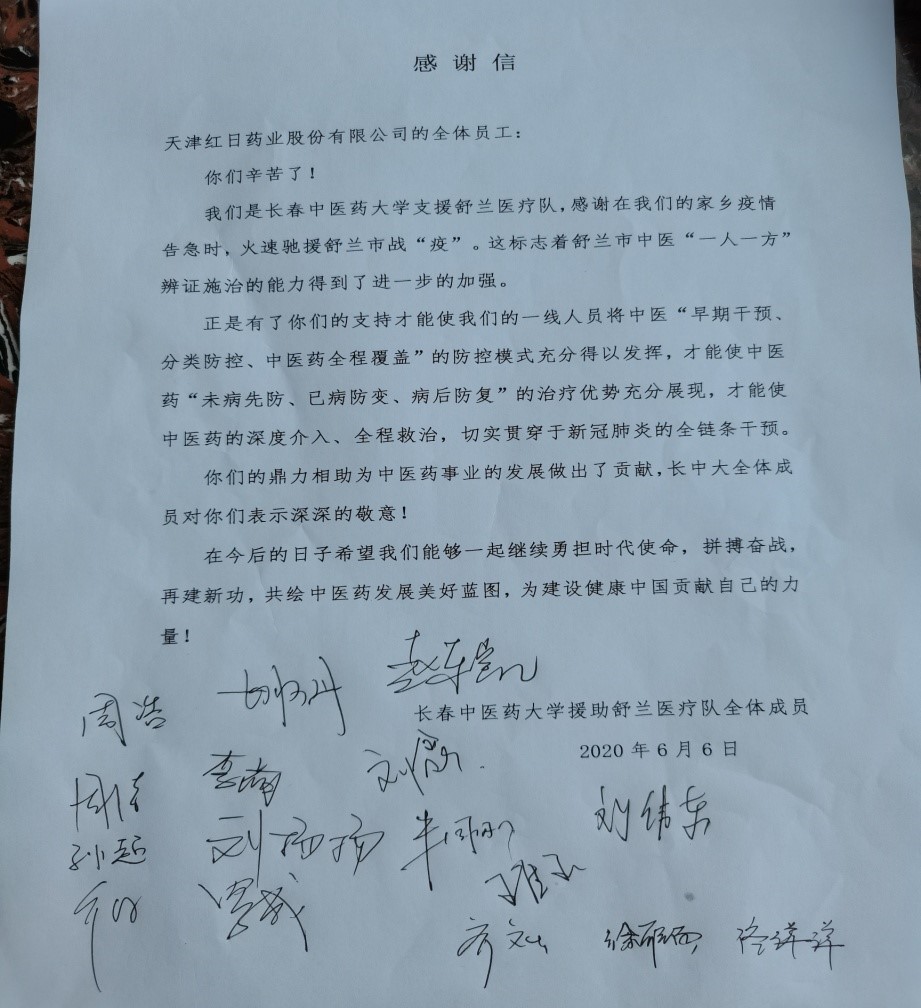 感谢信
天津红日药业股份有限公司的全体员工：
你们辛苦了！
我们是长春中医药大学支援舒兰医疗队，感谢在我们的家乡疫情
告急时，火速驰援舒兰市战“疫”。这标志着舒兰市中医“一人一方”
辨证施治的能力得到了进一步的加强。
正是有了你们的支持才能使我们的一线人员将中医“早期干预、
分类防控、中医药全程覆盖”的防控模式充分得以发挥，才能使中医
药“未病先防、已病防变、病后防复”的治疗优势充分展现，才能使
中医药的深度介入、全程救治，切实贯穿于新冠肺炎的全链条干预。
你们的鼎力相助为中医药事业的发展做出了贡献，长中大全体成
员对你们表示深深的敬意！
在今后的日子希望我们能够一起继续勇担时代使命，拼搏奋战，
再建新功，共绘中医药发展美好蓝图，为建设健康中国贡献自己的力
量！
周浩
长春中医药大学援助舒兰医疗队全体成员
2020 年 6 月 6 日
李楠
刘伟东
孙超
刘扬扬